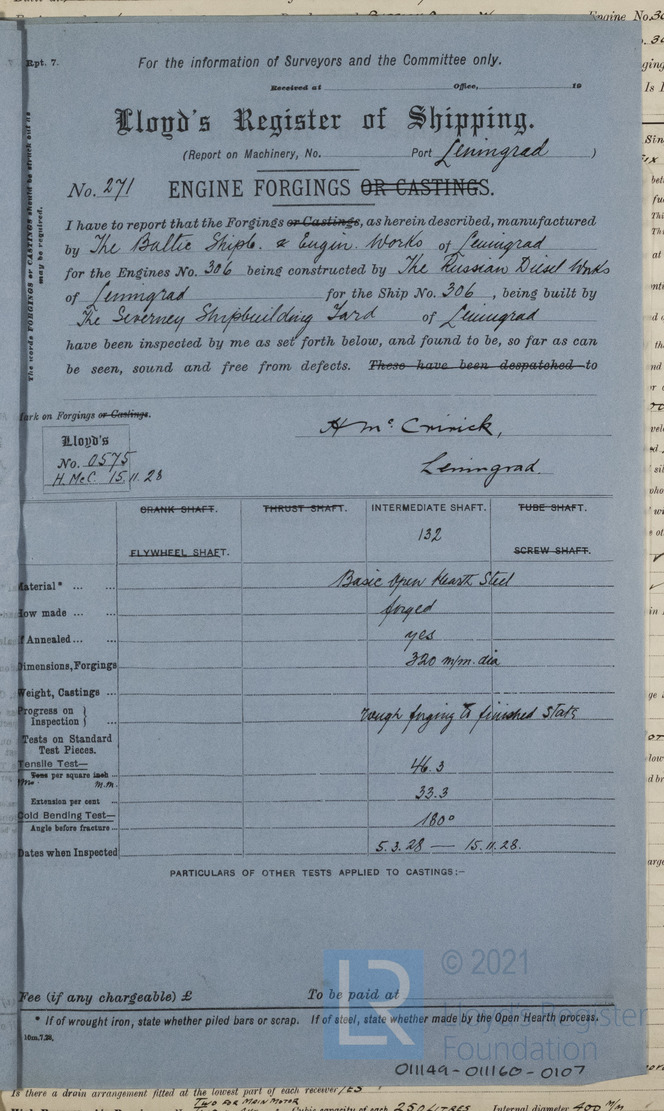 Rpt. 7.
For the information of Surveyors and the Committee only.
Received at Office, 19
Lloyd's Register of Shipping.
(Report on Machinery, No. Port Leningrad )
No. 271 ENGINE FORGINGS OR CASTINGS.
The words FORGINGS or CASTINGS should be struck out as may be required.
I have to report that the Forgings or Castings, as herein described, manufactured
by The Baltic Shipb. & Engin. Works of Leningrad
for the Engines No. 306 being constructed by The Russian Diesel Works
of Leningrad for the Ship No. 306, being built by
The Severney Shipbuilding Yard of Leningrad
have been inspected by me as set forth below, and found to be, so far as can
be seen, sound and free from defects. These have been despatched to
Mark on Forgings or Castings.
H Mc. Cririck,
Leningrad.
Lloyd's
No. 0575
H. McC. 15.11.28
CRANK SHAFT. THRUST SHAFT. INTERMEDIATE SHAFT. TUBE SHAFT.
132
FLYWHEEL SHAFT. SCREW SHAFT.
Material* ... ... Basic Open Hearth Steel
How made ... ... forged
If Annealed ... ... yes
Dimensions, Forgings 320 m/m. dia
Weight, Castings ...
Progress on Inspection } ... rough forging to finished state
Tests on Standard
Test Pieces.
Tensile Test— 46.3
Tons per square inch ...
m.m.
Extension per cent ... 33.3
Cold Bending Test—
Angle before fracture ... 180°
Dates when Inspected 5.3.28 — 15.11.28.
PARTICULARS OF OTHER TESTS APPLIED TO CASTINGS:—
Fee (if any chargeable) £ To be paid at
* If of wrought iron, state whether piled bars or scrap. If of steel, state whether made by the Open Hearth process.
10m,7,28,
LR
© 2021
Lloyd's Register
Foundation
011149-011160-0107
Is there a drain arrangement fitted at the lowest part of each receiver YES
TWO FOR MAIN MOTOR
250 LITRES Internal diameter 400 M/M